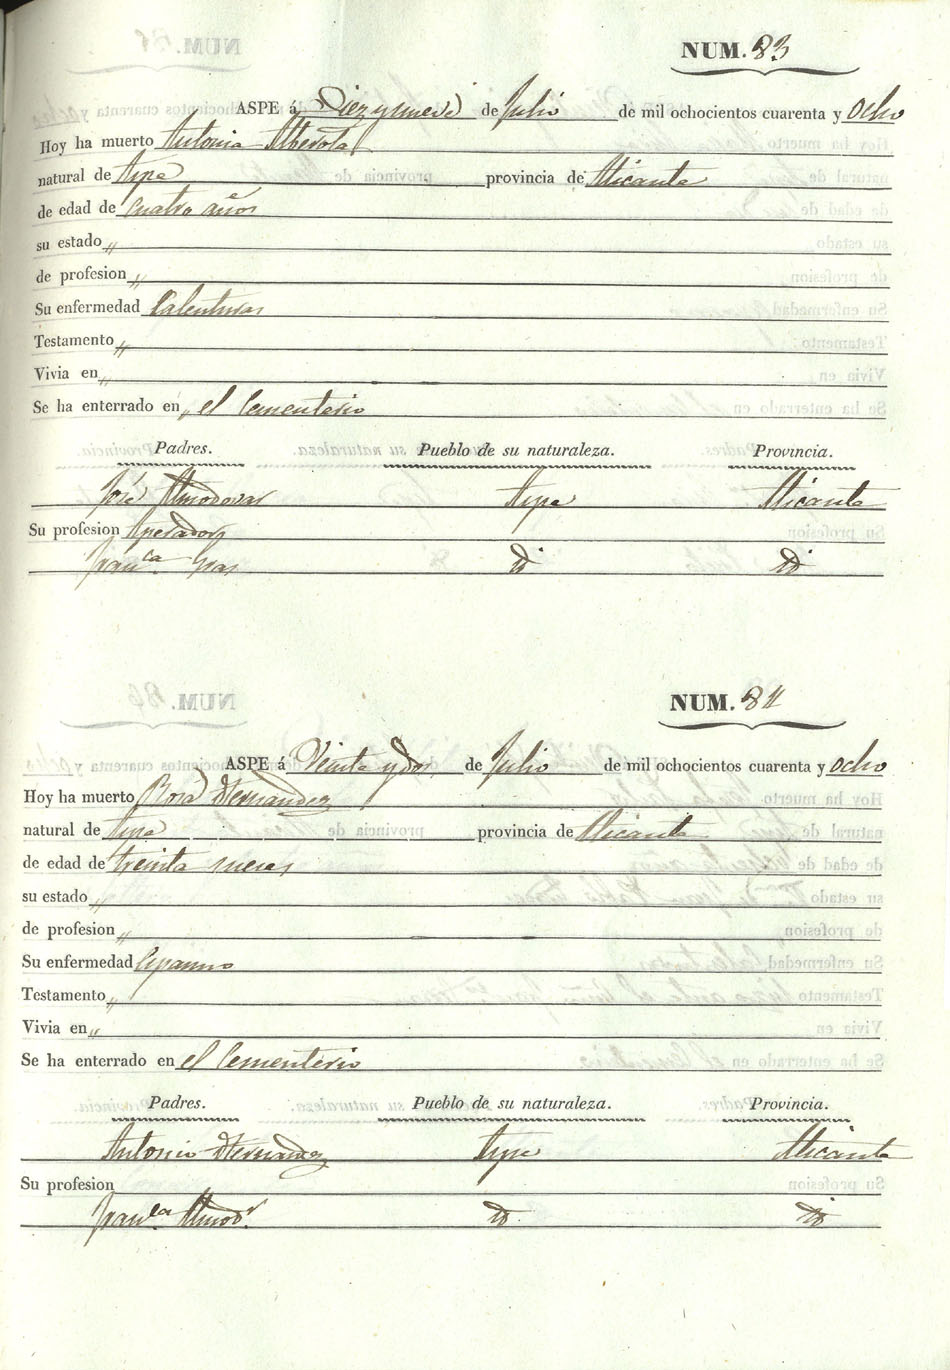 NUM. 83
ASPE á Diez y nueve de Julio de mil ochocientos cuarenta y Ocho
Hoy ha muerto Antonia Alberola
natural de Aspe provincia de Alicante
de edad de Cuatro años
su estado "
de profesion "
Su enfermedad Calenturas
Testamento "
Vivia en "
Se ha enterrado en el Cementerio
Padres. Pueblo de su naturaleza. Provincia.
José Almodovar Aspe Alicante
Su profesion Aperador
Fran.ca id id
NUM. 84
ASPE á Veinte y dos de Julio de mil ochocientos cuarenta y ocho
Hoy ha muerto Rosa Hernandez
natural de Aspe provincia de Alicante
de edad de treinta meses
su estado "
de profesion "
Su enfermedad
Testamento "
Vivia en "
Se ha enterrado en el Cementerio
Padres. Pueblo de su naturaleza. Provincia.
Antonio Hernandez Aspe Alicante
Su profesion
Fran.ca Almod.r id id